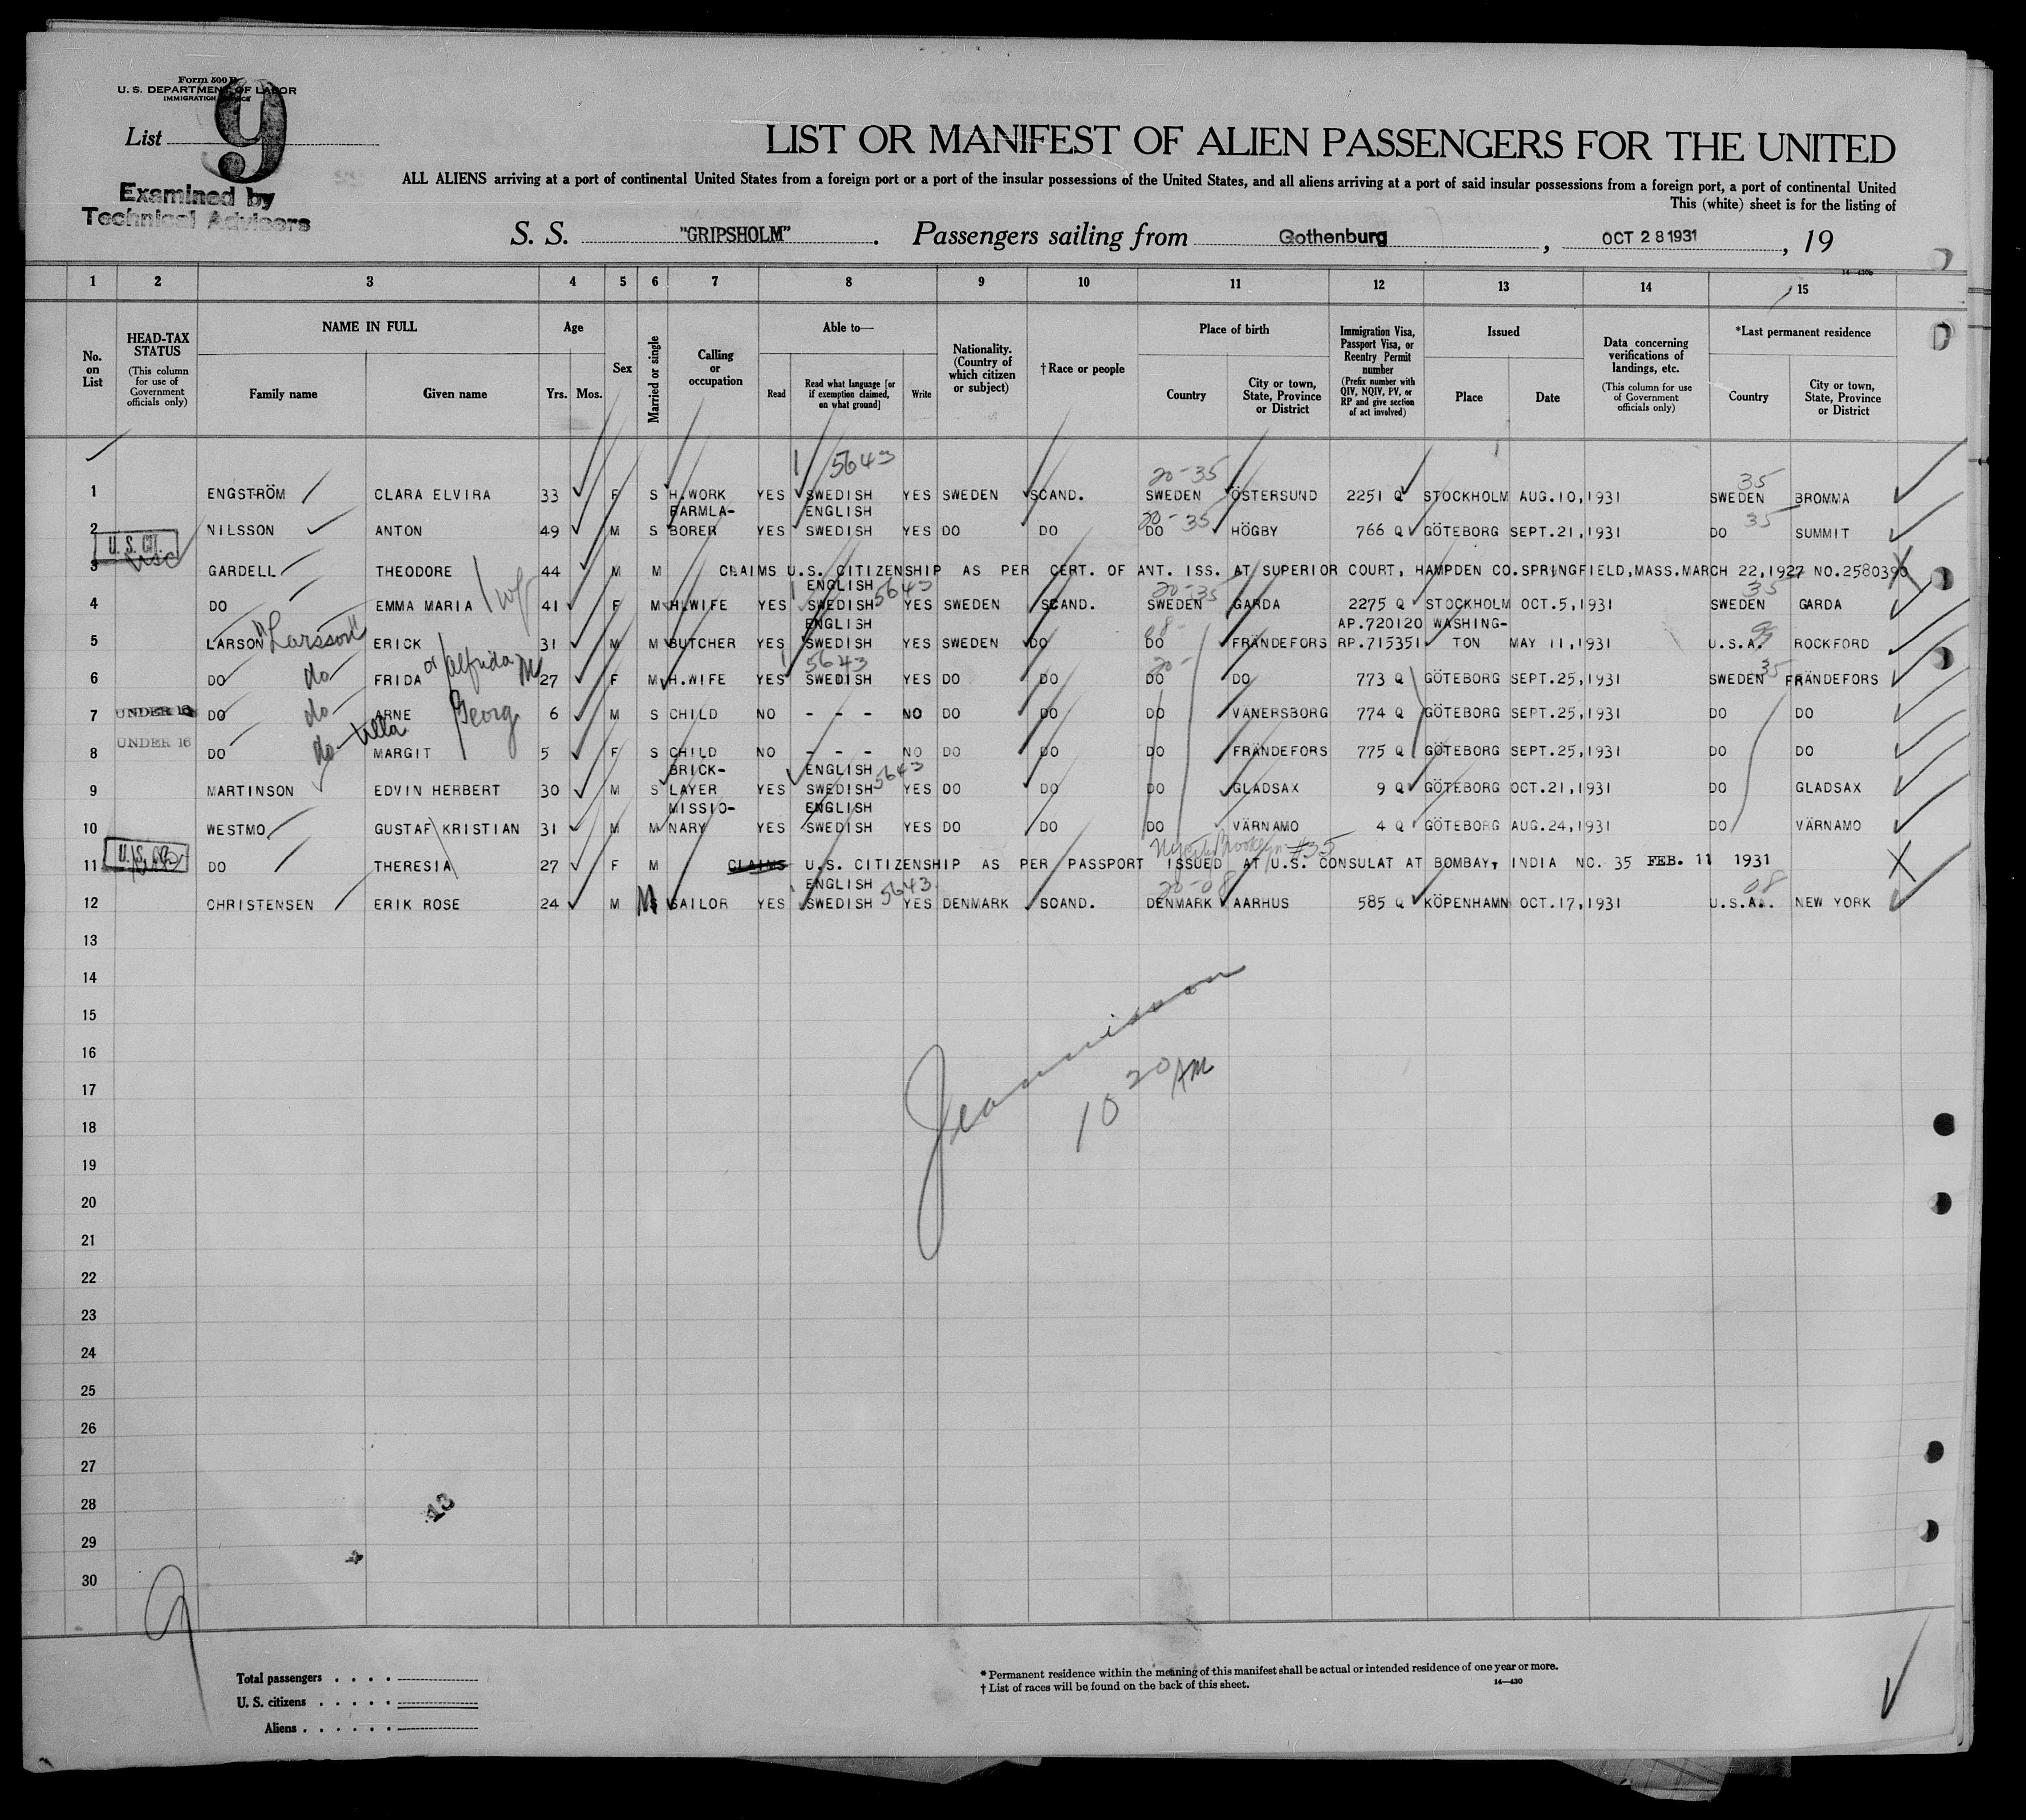 Form 500 B
U. S. DEPARTMENT OF LABOR
IMMIGRATION SERVICE
List 9
Examined by
Technical Advisers
LIST OR MANIFEST OF ALIEN PASSENGERS FOR THE UNITED
ALL ALIENS arriving at a port of continental United States from a foreign port or a port of the insular possessions of the United States, and all aliens arriving at a port of said insular possessions from a foreign port, a port of continental United
This (white) sheet is for the listing of
S. S. "GRIPSHOLM" . Passengers sailing from Gothenburg , OCT 28 1931 , 19
14—430b
1 2 3 4 5 6 7 8 9 10 11 12 13 14 15
No. on List
HEAD-TAX STATUS (This column for use of Government officials only)
NAME IN FULL
Family name Given name
Age
Yrs. Mos.
Sex
Married or single
Calling or occupation
Able to—
Read Read what language [or if exemption claimed, on what ground] Write
Nationality. (Country of which citizen or subject)
†Race or people
Place of birth
Country City or town, State, Province or District
Immigration Visa, Passport Visa, or Reentry Permit number (Prefix number with QIV, NQIV, PV, or RP and give section of act involved)
Issued
Place Date
Data concerning verifications of landings, etc. (This column for use of Government officials only)
*Last permanent residence
Country City or town, State, Province or District
5643 20-35 35
1 ENGSTRÖM CLARA ELVIRA 33 F S H.WORK YES SWEDISH YES SWEDEN SCAND. SWEDEN ÖSTERSUND 2251 Q STOCKHOLM AUG.10,1931 SWEDEN BROMMA
FARMLA- ENGLISH 20-35 35
2 NILSSON ANTON 49 M S BORER YES SWEDISH YES DO DO DO HÖGBY 766 Q GÖTEBORG SEPT.21,1931 DO SUMMIT
U. S. CIT.
3 GARDELL THEODORE 44 M M CLAIMS U.S. CITIZENSHIP AS PER CERT. OF ANT. ISS. AT SUPERIOR COURT, HAMPDEN CO.SPRINGFIELD,MASS.MARCH 22,1927 NO.2580390
wf ENGLISH 5643 20-35 35
4 DO EMMA MARIA 41 F M H.WIFE YES SWEDISH YES SWEDEN SCAND. SWEDEN GARDA 2275 Q STOCKHOLM OCT.5,1931 SWEDEN GARDA
ENGLISH AP.720120 WASHING-
5 LARSON "Larsson" ERICK 31 M M BUTCHER YES SWEDISH YES SWEDEN DO DO FRÄNDEFORS RP.715351 TON MAY 11,1931 U.S.A. ROCKFORD
5643 20- 35
6 DO do FRIDA or Alfrida M 27 F M H.WIFE YES SWEDISH YES DO DO DO DO 773 Q GÖTEBORG SEPT.25,1931 SWEDEN FRÄNDEFORS
7 UNDER 16 DO do ARNE Georg 6 M S CHILD NO - - - NO DO DO DO VÄNERSBORG 774 Q GÖTEBORG SEPT.25,1931 DO DO
8 UNDER 16 DO do Ulla MARGIT 5 F S CHILD NO - - - NO DO DO DO FRÄNDEFORS 775 Q GÖTEBORG SEPT.25,1931 DO DO
BRICK- ENGLISH 5643
9 MARTINSON EDVIN HERBERT 30 M S LAYER YES SWEDISH YES DO DO DO GLADSAX 9 Q GÖTEBORG OCT.21,1931 DO GLADSAX
MISSIO- ENGLISH
10 WESTMO GUSTAF KRISTIAN 31 M M NARY YES SWEDISH YES DO DO DO VÄRNAMO 4 Q GÖTEBORG AUG.24,1931 DO VÄRNAMO
Brooklyn #35
11 DO THERESIA 27 F M CLAIMS U.S. CITIZENSHIP AS PER PASSPORT ISSUED AT U.S. CONSULAT AT BOMBAY, INDIA NO. 35 FEB. 11 1931
ENGLISH 5643 20-08 08
12 CHRISTENSEN ERIK ROSE 24 M M SAILOR YES SWEDISH YES DENMARK SCAND. DENMARK AARHUS 585 Q KÖPENHAMN OCT.17,1931 U.S.A. NEW YORK
13
14
15
16
17
18
19
20
21
22
23
24
25
26
27
28
29
30
10 20 AM
43
9
Total passengers
U. S. citizens
Aliens
* Permanent residence within the meaning of this manifest shall be actual or intended residence of one year or more.
† List of races will be found on the back of this sheet.
14—430